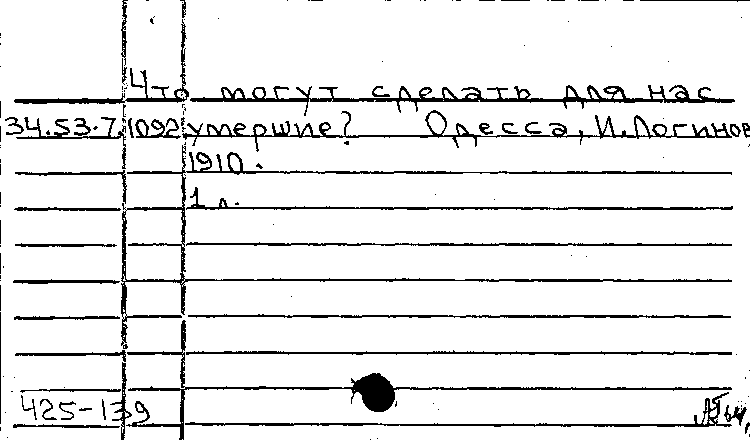 Что могут сделать для нас
34.53.7.1092 умершие? Одесса, И.Логинов
1910.
1 л.
425-139